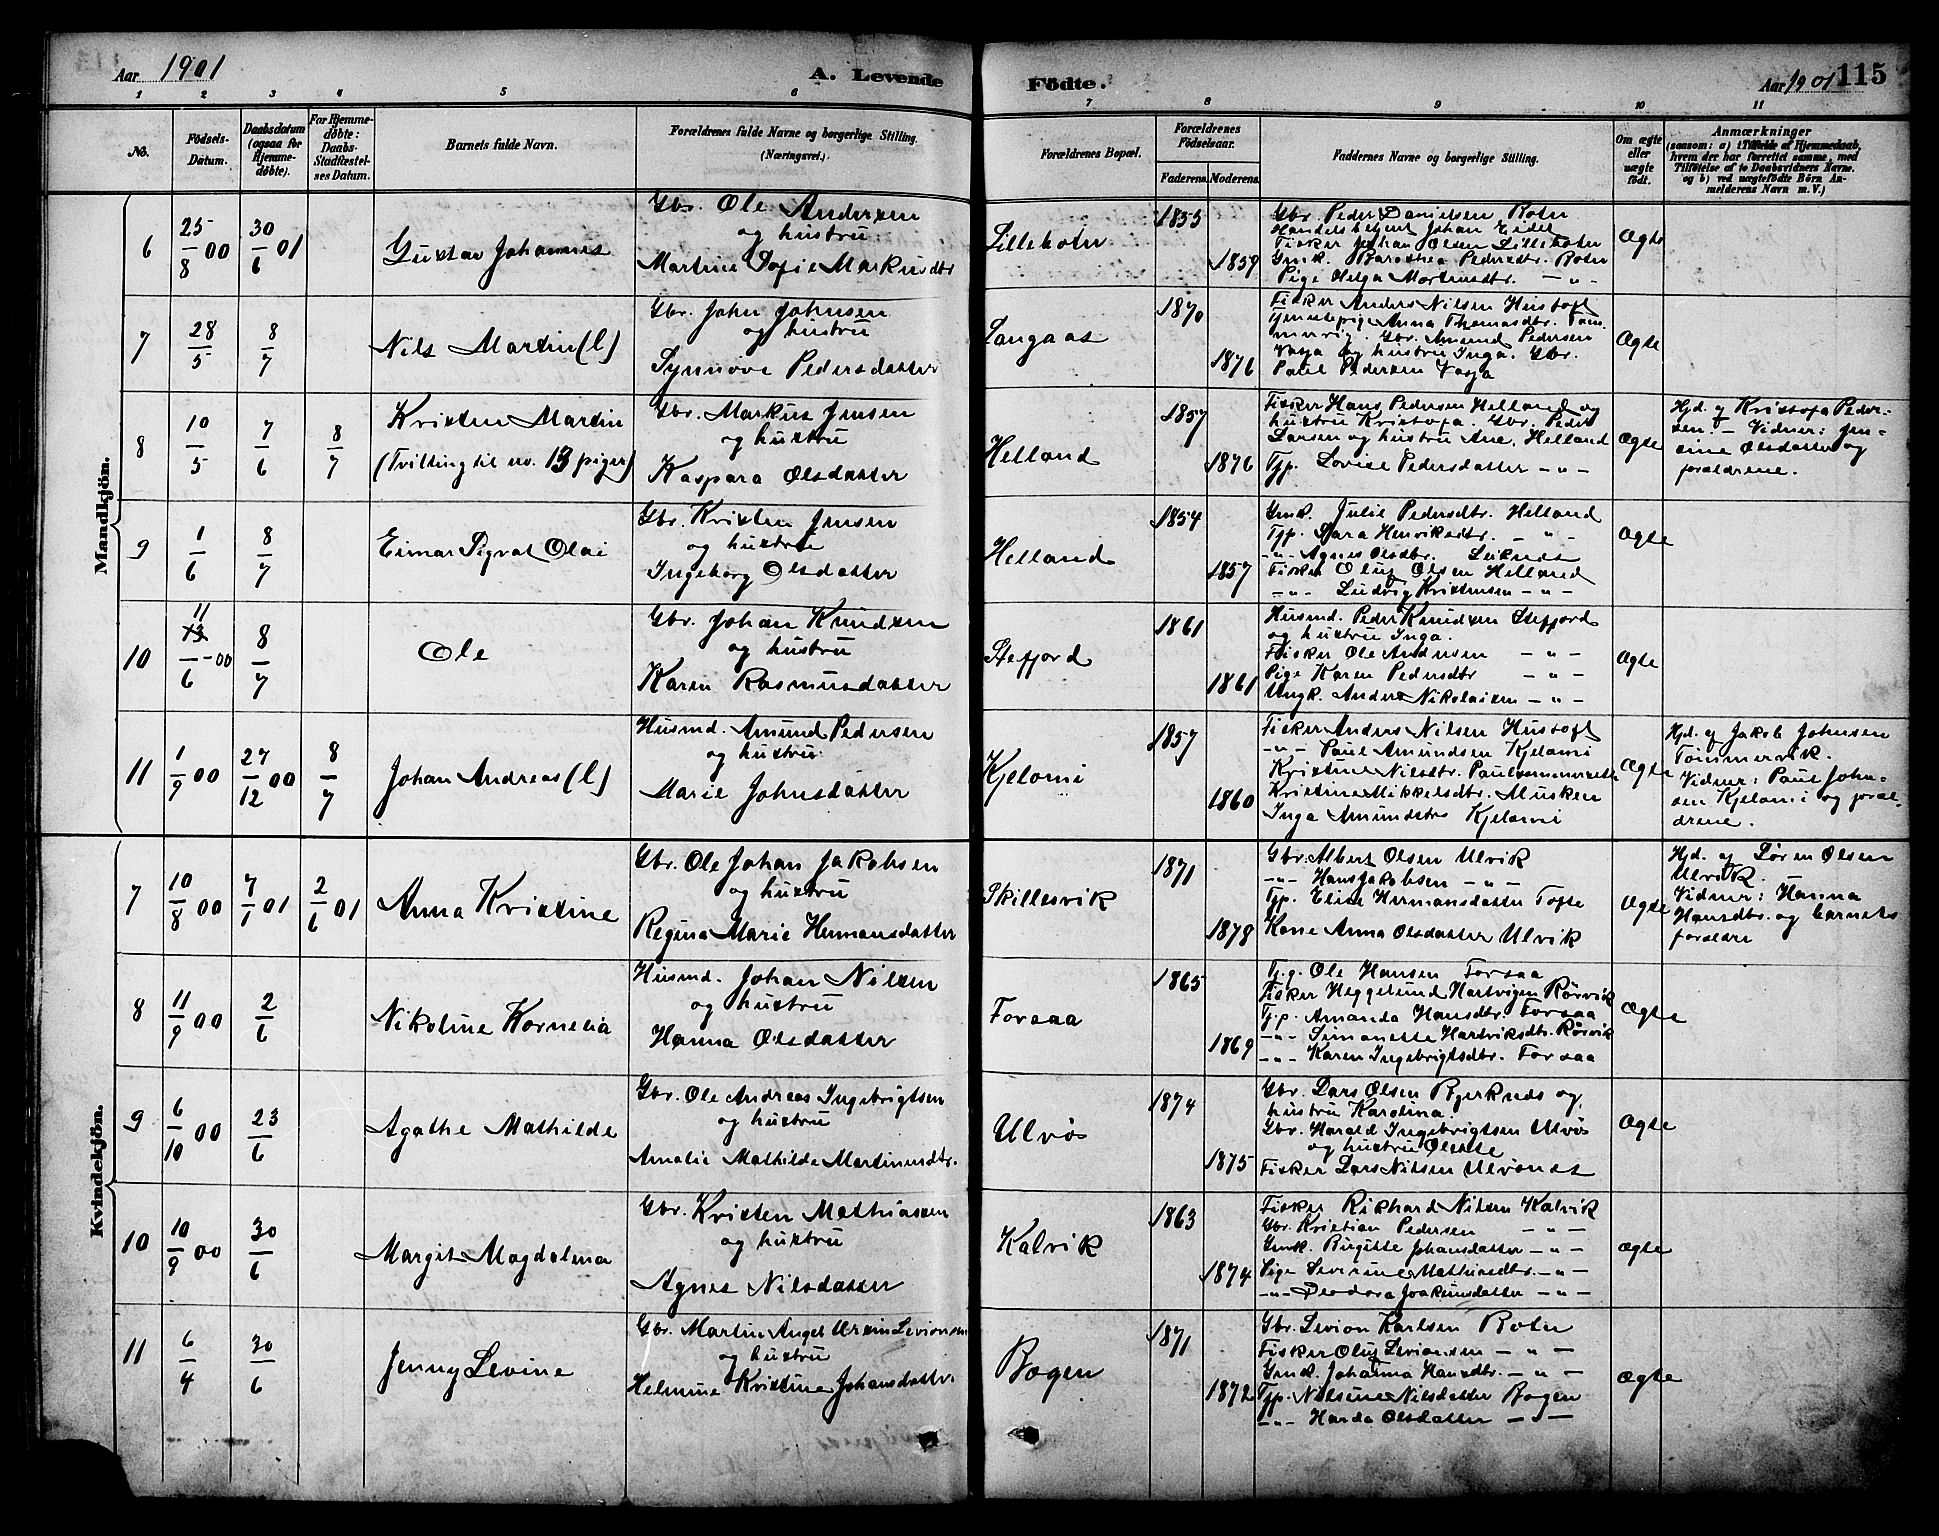 Aar 1901
A. Levende
Födte.
Aar 1901 115
1 2 3 4 5 6 7 8 9 10 11
No.
Födsels-
Datum.
Daabsdatum
(ogsaa for
Hjemme-
døbte).
For Hjemme-
døbte:
Daabs-
Stadfæstel-
ses Datum.
Barnets fulde Navn.
Forældrenes fulde Navne og borgerlige Stilling.
(Næringsvei.)
Forældrenes Bopæl.
Forældrenes
Födselsaar.
Faderens. Moderens.
Faddernes Navne og borgerlige Stilling.
Om ægte
eller
uægte
födt.
Anmærkninger
(saasom: a) i Tilfælde af Hjemmedaab,
hvem der har forrettet samme, med
Tilföielse af to Daabsvidners Navne,
og b) ved uægtefödte Börn An-
melderens Navn m. V.)
Mandkjön.
6
25/8 00
30/6 01
Gustav Johannes
Gbr. Ole Andersen
og hustru
Martine Sofie Markusdtr
Lillehotn
1855
1859
Gbr. Peder Danielsen Botn
Handelsbetjent Johan Eidet
Fisker Johan Olsen Lillebotn
Gmk. Barothea Pedersdtr. Botn
Pige Helga Mortensdtr. - " -
Ægte
7
28/5
8/7
Nils Martin (l)
Gbr. John Johnsen
og hustru
Synnöve Pedersdatter
Langaas
1870
1876
Fisker Anders Nilsen Hustoft
Tjenestepige Anna Thomasdtr. Tom-
mervig. Gbr. Amund Pedersen
Vasja og hustru Inga. Gbr.
Paul Pedersen Vasja
Ægte
8
10/5
7/6
8/7
Kristen Martin
(Tvilling til no. 13 piger)
Gbr. Markus Jensen
og hustru
Kaspara Olsdatter
Helland
1857
1876
Fisker Hans Pedersen Helland og
hustru Kristofa. Gbr. Peder
Larsen og hustru Ane, Helland
Tjp. Lovise Pedersdatter - " -
Ægte
Hjd. af Kristofa Peder-
sen. - Vidner: Jen-
sine Olsdatter og
forældrene.
9
1/6
8/7
Einar Sigvat Olai
Gbr. Kristen Jensen
og hustru
Ingeborg Olsdatter
Helland
1854
1857
Gmk. Julie Pedersdtr. Helland
Tjp. Sara Henriksdtr. - " -
- " - Agnes Olsdtr.
Fisker Oluf Olsen Helland
- " - Ludvig Kristensen - " -
Ægte
10
11
13/6 - 00
8/7
Ole
Gbr. Johan Knudsen
og hustru
Karen Rasmusdatter
Stefjord
1861
1861
Husmd. Peder Knudsen Stefjord
og hustru Inga.
Fisker Ole Andersen - " -
Pige Karen Pedersdtr - " -
Ungk. Anders Nikolaisen - " -
Ægte
11
1/9 00
27/12 00
8/7
Johan Andreas (l)
Husmd. Amund Pedersen
og hustru
Marie Johnsdatter
Kjelomi
1857
1860
Fisker Anders Nilsen Hustoft
- " - Paul Amundsen Kjelomi
Kristine Nilsdtr.
Kristine Mikkelsdtr. Musken
Inga Amundsdtr Kjelomi
Ægte
Hjd. af Jakob Johnsen
Tömmervik.
Vidner: Paul John-
sen Kjelomi og foræl-
drene.
Kvindekjön.
7
10/8 00
7/1 01
2/6 01
Anna Kristine
Gbr. Ole Johan Jakobsen
og hustru
Regina Marie Hermansdatter
Skillesvik
1871
1878
Gbr. Albert Olsen Ulvik
- " - Hans Jakobsen - " -
Tjp. Elise Hermansdatter Tofte
Kone Anna Olsdatter Ulvik
Ægte
Hjd. af Sören Olsen
Ulvik.
Vidner: Hanna
Hansdtr. og barnets
forældre
8
11/9 00
2/6
Nikoline Kornelia
Husmd. Johan Nilsen
og hustru
Hanna Olsdatter
Forsaa
1865
1869
Tj.g. Ole Hansen Forsaa
Fisker Heggelund Hartvigen Rörvik
Tj.p. Amanda Hansdtr. Forsaa
- " - Simonette Hartviksdtr. Rörvik
- " - Karen Ingebrigtsdtr. Forsaa
Ægte
9
6/10 00
23/6
Agathe Mathilde
Gbr. Ole Andreas Ingebrigtsen
og hustru
Amalie Mathilde Martinusdtr.
Ulvös
1874
1875
Gbr. Lars Olsen Bjerknes og
hustru Karolina.
Gbr. Harald Ingebrigtsen Ulvös
og hustru Olette
Fisker Lars Nilsen Ulvönes
Ægte
10
10/9 00
30/6
Margit Magdalena
Gbr. Kristen Mathiassen
og hustru
Agnes Nilsdatter
Kalvik
1863
1874
Fisker Rikhard Nilsen Kalvik
Gbr. Kristian Pedersen - " -
Gmk. Birgitte Johansdatter - " -
Pige Severine Mathisdtr. - " -
- " - Deodora Joakimsdatter - " -
Ægte
11
6/4
30/6
Jenny Levine
Gbr. Martin Angel Ursin Levionsen
og hustru
Helmine Kristine Johansdatter
Bogen
1871
1872
Gbr. Levion Karlsen Botn
Fisker Oluf Levionsen - " -
Gmk. Johanna Hansdtr. - " -
Tjp. Nilsine Nilsdatter Bogen
- " - Harda Olsdatter - " -
Ægte